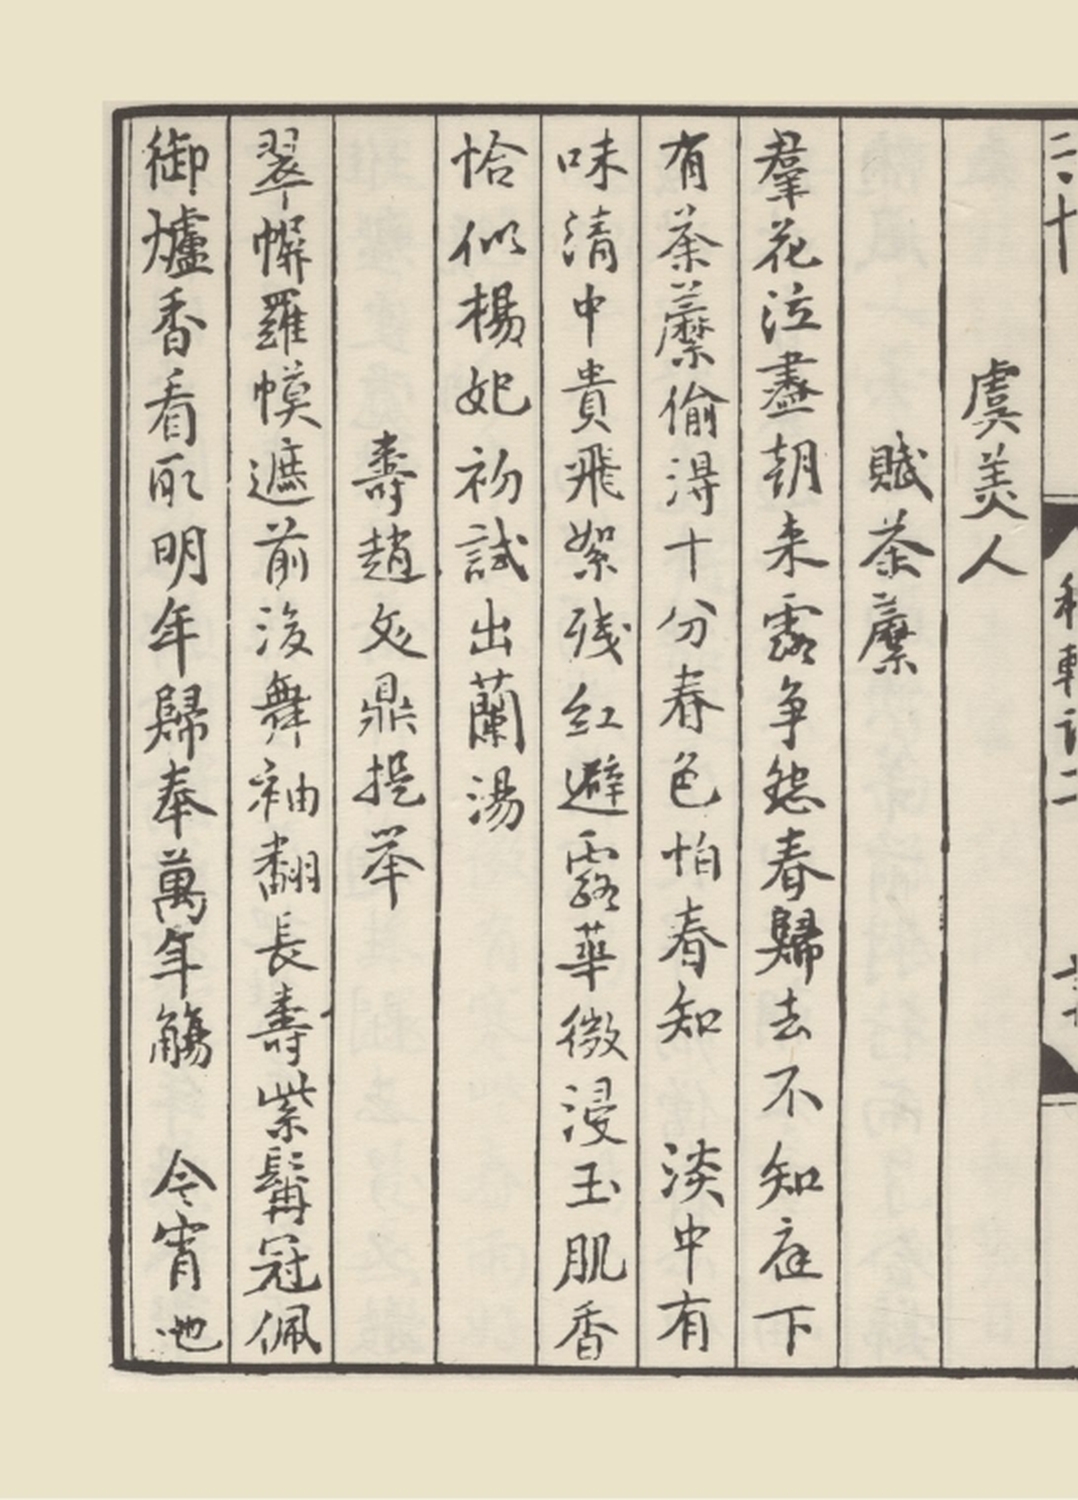 二十
稼軒詞二
虞美人
賦荼蘼
羣花泣盡朝来露争怨春歸去不知庭下
有荼蘼偷得十分春色怕春知　淡中有
味清中貴飛絮残红避露華微浸玉肌香
恰似楊妃初試出蘭湯
壽趙文鼎提举
翠幙羅幙遮前後舞袖翻長壽紫髯冠佩
御爐香看取明年歸奉萬年觴　今宵池